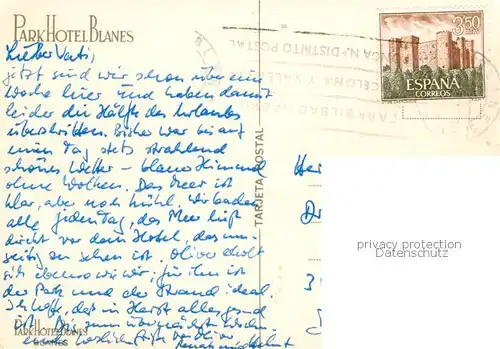 PARK HOTEL BLANES
Lieber Vati,
jetzt sind wir schon über eine
Woche hier und haben damit
leider die Hälfte des Urlaubs
überschritten. Bisher war bis auf
einen Tag stets strahlend
schönes Wetter – blauer Himmel
ohne Wolken. Das Meer ist
klar, aber noch kühl. Wir baden
alle jeden Tag, das Meer liegt
direkt vor dem Hotel, das um-
seitig zu sehen ist. Oliver erholt
sich ebenso wie wir, für ihn ist
der Park und der Strand ideal.
Ich hoffe, daß in Harst alles gesund
ist.
PARK HOTEL BLANES
BLANES
TARJETA POSTAL
3,50
PTAS
ESPAÑA
CORREOS
DISTRITO POSTAL
Her
Dr
3
privacy protection
Datenschutz